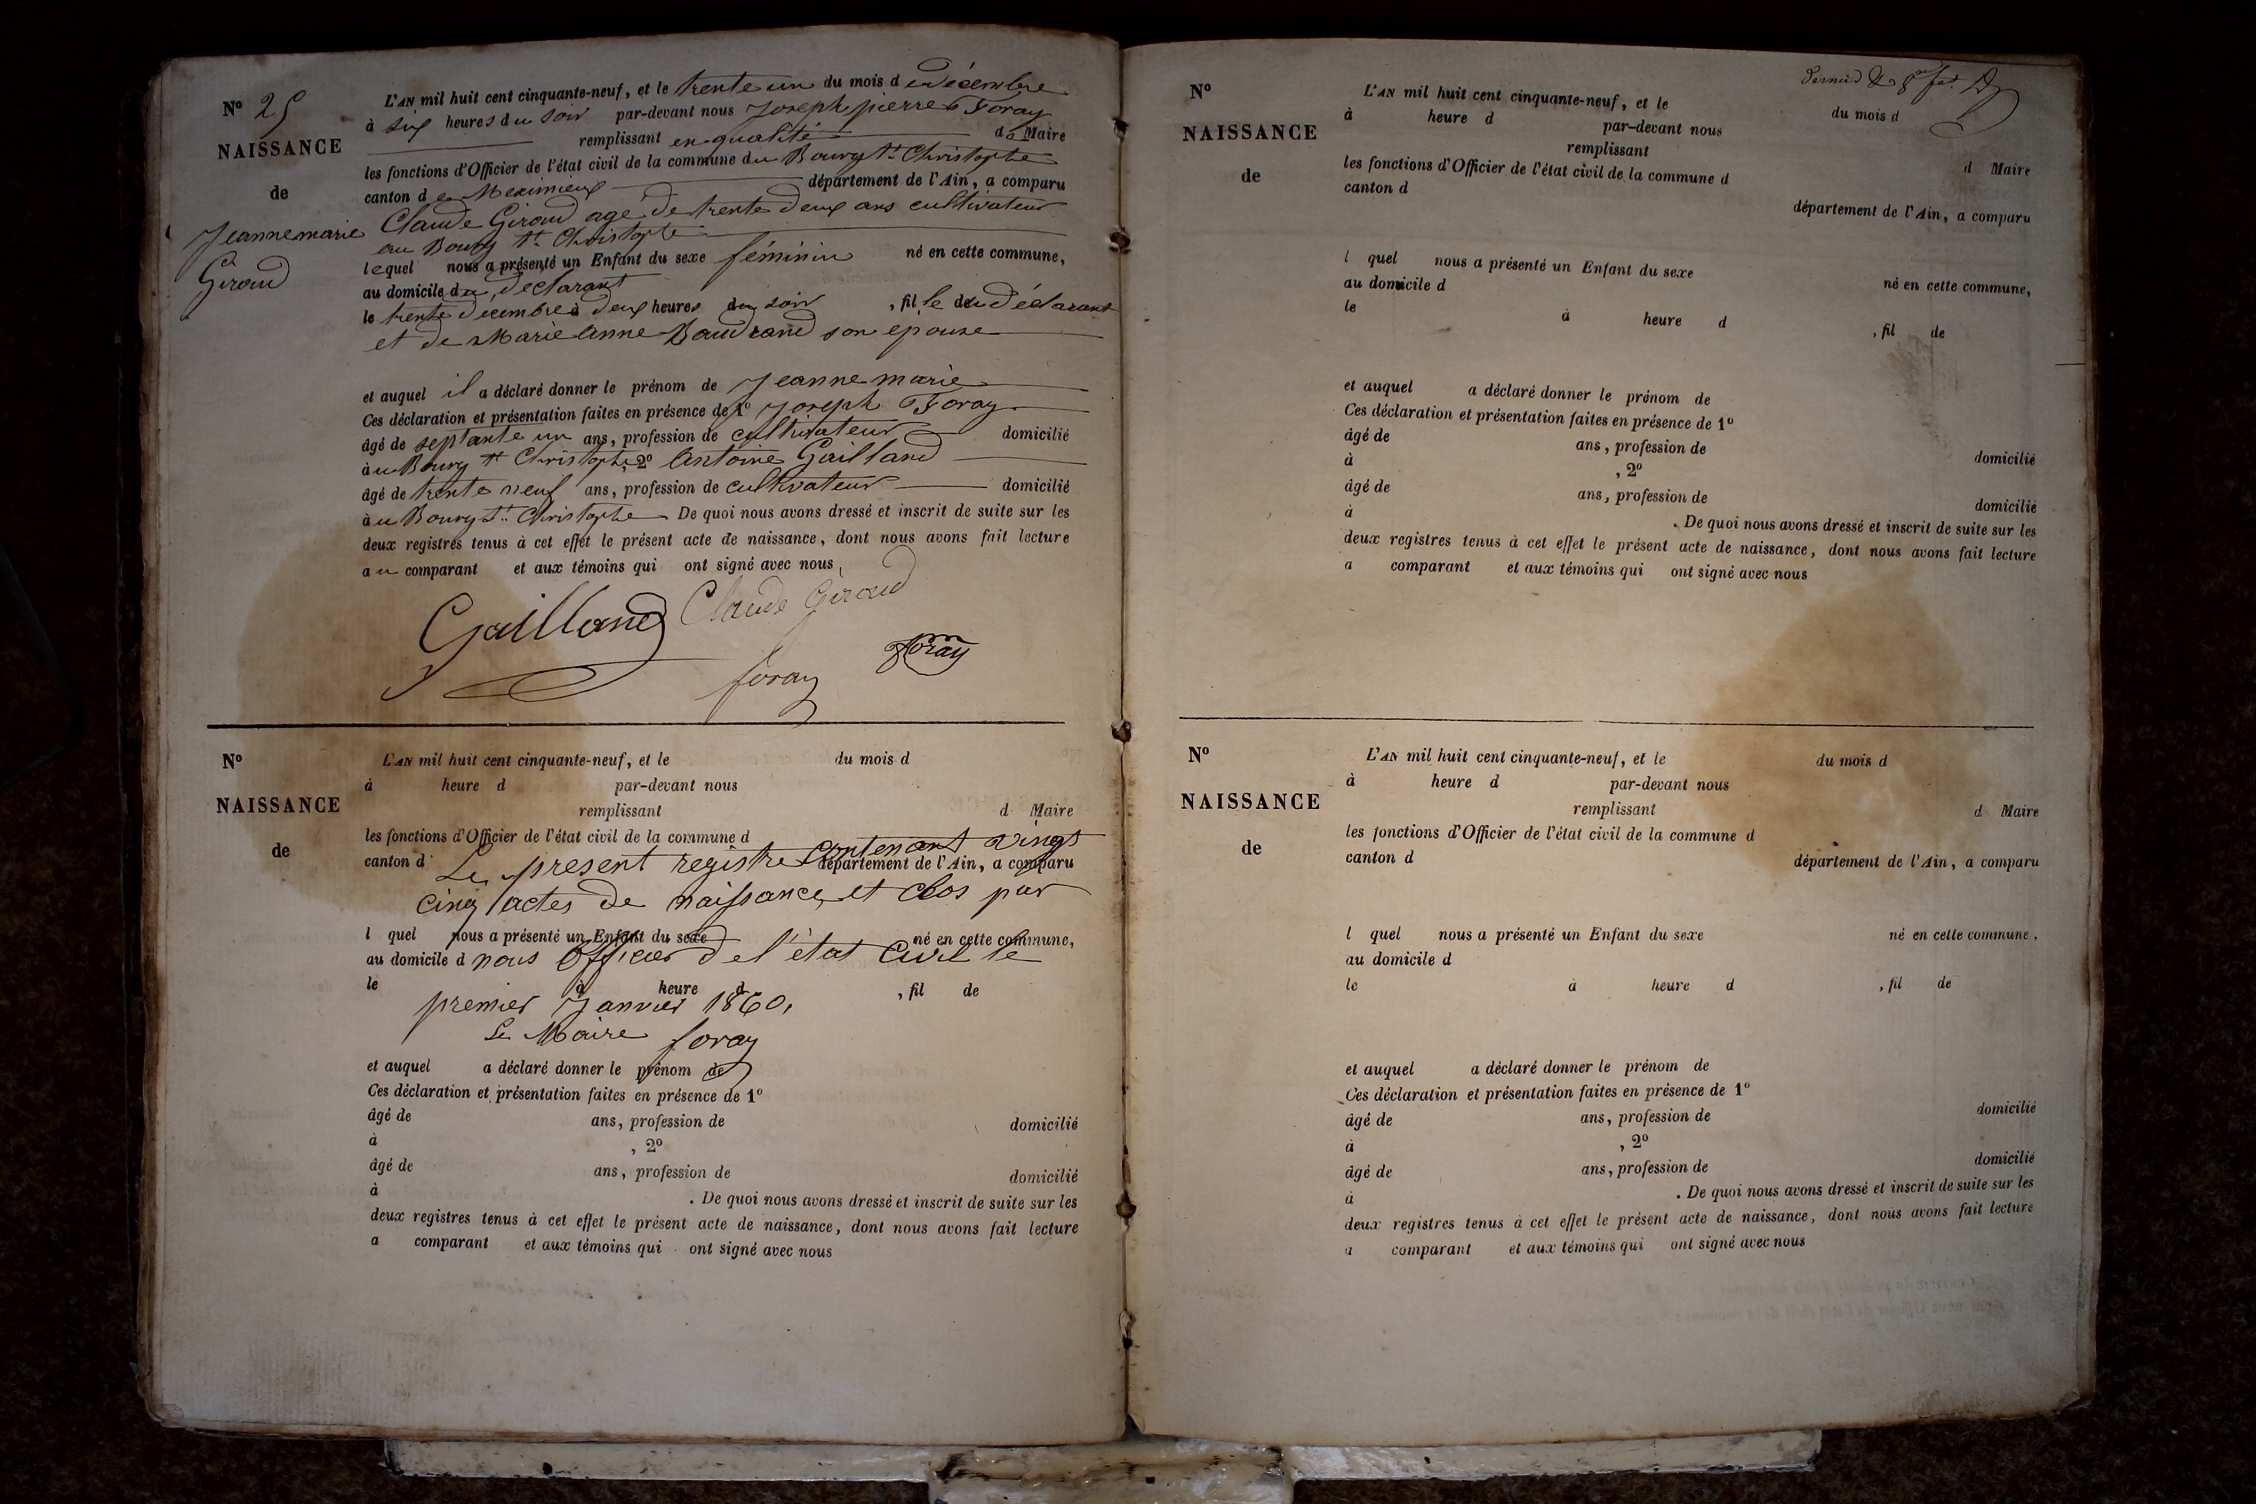 N° 25
NAISSANCE
de
Jeanne marie
Giroud
L'AN mil huit cent cinquante-neuf, et le trente un du mois d décembre
à six heures du soir par-devant nous Joseph pierre Foray
remplissant en qualité de Maire
les fonctions d'Officier de l'état civil de la commune du Bourg St Christophe
canton de Meximieux département de l'Ain, a comparu
Claude Giroud agé de trente deux ans cultivateur
au Bourg St Christophe
lequel nous a présenté un Enfant du sexe féminin né en cette commune,
au domicile du déclarant
le trente decembre à deux heures du soir , fille du déclarant
et de Marie Anne Baudrand son epouse
et auquel il a déclaré donner le prénom de Jeanne marie
Ces déclaration et présentation faites en présence de 1° Joseph Foray
âgé de septante un ans, profession de cultivateur domicilié
au Bourg St Christophe, 2° Antoine Gailland
âgé de trente neuf ans, profession de cultivateur domicilié
au Bourg St Christophe De quoi nous avons dressé et inscrit de suite sur les
deux registres tenus à cet effet le présent acte de naissance, dont nous avons fait lecture
au comparant et aux témoins qui ont signé avec nous,
Gailland Claude Giroud
foray foray
N°
NAISSANCE
de
L'AN mil huit cent cinquante-neuf, et le du mois d
à heure d par-devant nous
remplissant d Maire
les fonctions d'Officier de l'état civil de la commune d
canton d département de l'Ain, a comparu
Le present registre contenant vingt
cinq actes de naissance, et clos par
l quel nous a présenté un Enfant du sexe né en cette commune,
au domicile d
nous Officier de l'état Civil le
le à heure d , fil de
premier Janvier 1860,
Le Maire foray
et auquel a déclaré donner le prénom de
Ces déclaration et présentation faites en présence de 1°
âgé de ans, profession de domicilié
à , 2°
âgé de ans, profession de domicilié
à . De quoi nous avons dressé et inscrit de suite sur les
deux registres tenus à cet effet le présent acte de naissance, dont nous avons fait lecture
a comparant et aux témoins qui ont signé avec nous
N°
NAISSANCE
de
L'AN mil huit cent cinquante-neuf, et le du mois d
à heure d par-devant nous
remplissant d Maire
les fonctions d'Officier de l'état civil de la commune d
canton d département de l'Ain, a comparu
l quel nous a présenté un Enfant du sexe né en cette commune,
au domicile d
le à heure d , fil de
et auquel a déclaré donner le prénom de
Ces déclaration et présentation faites en présence de 1°
âgé de ans, profession de domicilié
à , 2°
âgé de ans, profession de domicilié
à . De quoi nous avons dressé et inscrit de suite sur les
deux registres tenus à cet effet le présent acte de naissance, dont nous avons fait lecture
a comparant et aux témoins qui ont signé avec nous
N°
NAISSANCE
de
L'AN mil huit cent cinquante-neuf, et le du mois d
à heure d par-devant nous
remplissant d Maire
les fonctions d'Officier de l'état civil de la commune d
canton d département de l'Ain, a comparu
l quel nous a présenté un Enfant du sexe né en cette commune.
au domicile d
le à heure d , fil de
et auquel a déclaré donner le prénom de
Ces déclaration et présentation faites en présence de 1°
âgé de ans, profession de domicilié
à , 2°
âgé de ans, profession de domicilié
à . De quoi nous avons dressé et inscrit de suite sur les
deux registres tenus à cet effet le présent acte de naissance, dont nous avons fait lecture
a comparant et aux témoins qui ont signé avec nous